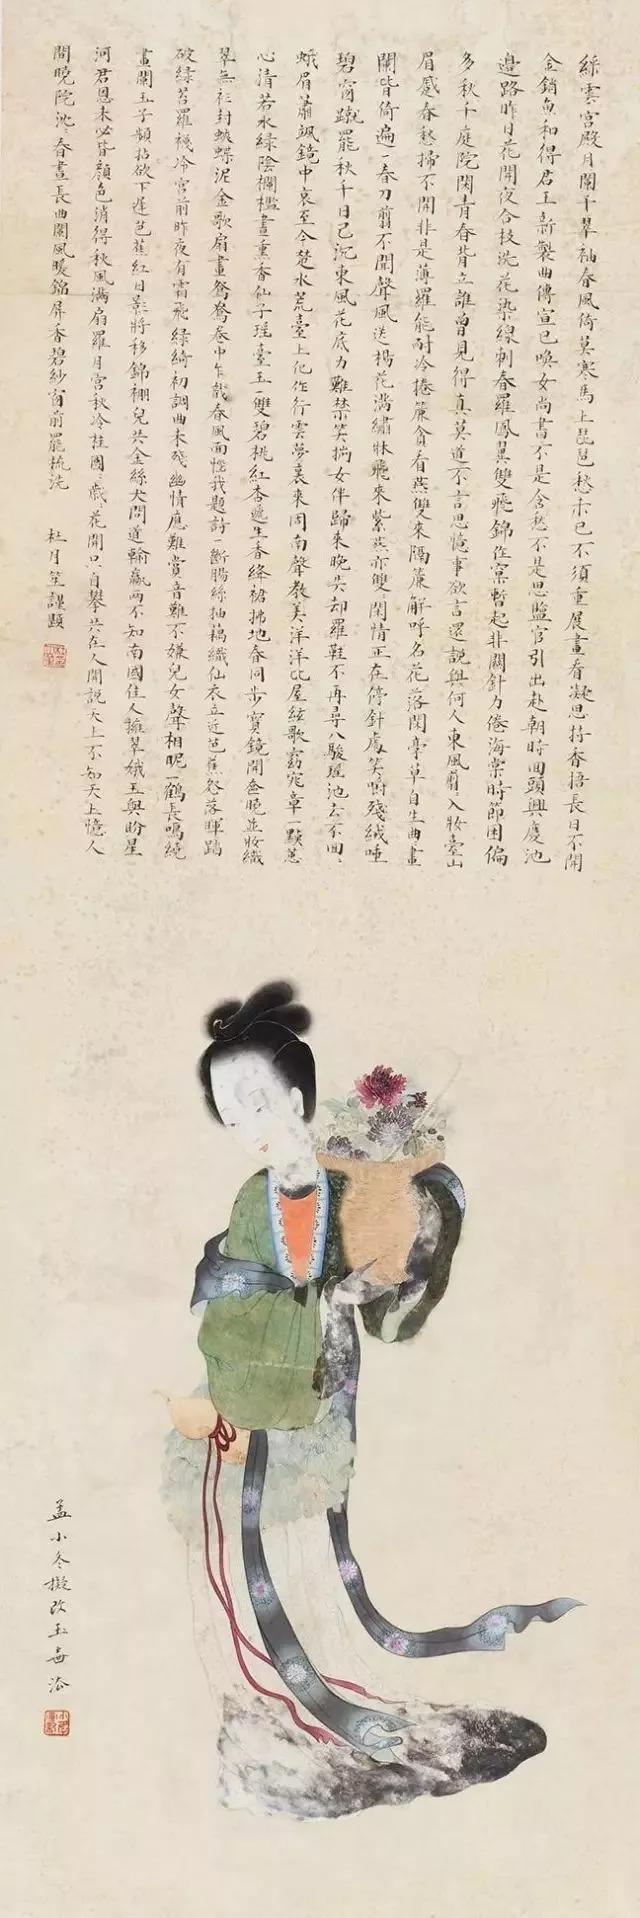 綵雲宮殿月闌干翠袖春風倚莫寒馬上琵琶愁未已不須重展畫看凝思持香搢長日不開
金銷魚和得君王新製曲傳宣已喚女尚書不是含愁不是思監官引出赴朝時回頭興慶池
邊路昨日花開夜合枝洗花染線刺春羅鳳翼雙飛錦作窠暫起非關針力倦海棠時節困偏
多秋千庭院閑青春背立誰曾見得真莫道不言思憶事欲言還說與何人東風剪入妝臺山
眉蹙春愁掃不開非是薄羅能耐冷捲簾貪看燕雙來隔簾解呼名花落閑亭草自生曲畫
闌皆倚遍一春刀剪不聞聲風送楊花滿繡牀飛來紫燕亦雙閑情正在停針處笑嚼殘絨唾
碧窗蹴罷秋千日已沉東風花底力難禁笑揣女伴歸來晚失却羅鞋不再尋八駿瑤池去不回
蛾眉蕭颯鏡中哀至今楚水荒臺上化作行雲夢裏來周南聲教美洋洋比屋絃歌窈窕章一點蕙
心清若水綠陰欄檻晝熏香仙子瑤臺玉一雙碧桃紅杏遞生香絳裙拂地春同步寶鏡開奩曉並妝織
翠無衽封蛺蝶泥金歌扇畫鴛鴦卷中乍識春風面惱我題詩一斷腸絲抽藕織仙衣立近芭蕉怨落暉踏
破綠苔羅襪冷宮前昨夜有霜飛綠綺初調曲未殘幽情應難賞音難不嫌兒女聲相昵一鶴長鳴繞
畫闌玉子頻拈欲下遲芭蕉紅日影將移錦棚兒共金絲犬問道輸贏兩不知南國佳人擁翠娥玉與盼星
河君恩未必皆顏色消得秋風滿扇羅月宮秋冷桂團二歲花開只自攀共在人間說天上不知天上憶人
間曉院沈春晝長曲闌風暖錦屏香碧紗窗前罷梳洗 杜月笙謹題
孟小冬擬改玉壺法